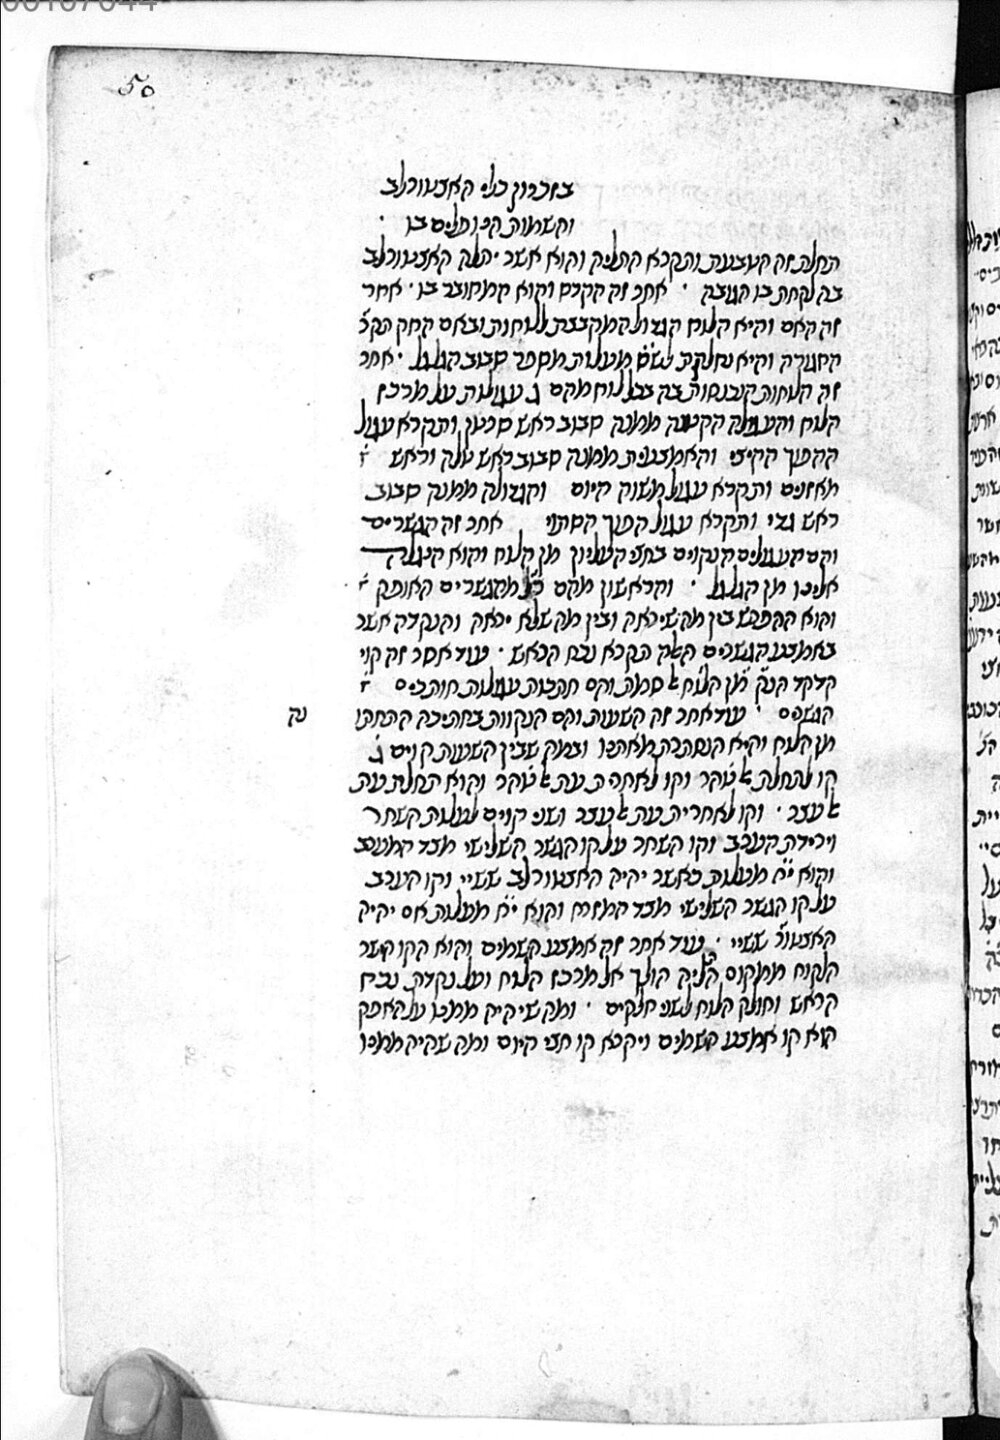 50
בזכרון כלי האצטורלב
והשמות הנופלים בו
תחלת זה הטבעת ותקרא התליה והוא אשר יתלה האצטורלב
בה לקחת בו הגובה · אחר זה הקרס והוא המחובר בו · אחר
זה האם והיא הלוח הגדול המקבצת ללוחות ובאם החק תקר
החגורה והיא נחלקת לש״ס מעלות מספר סבוב הגלגל · אחר
זה הלוחות הנכנסות בה בכל לוח מהם ג׳ עגולות על מרכז
הלוח והעגולה הקטנה ממנה סבוב ראש סרטן ותקרא עגול
ההפוך הקיצי והאמצעית ממנה סבוב ראש טלה וראש
מאזנים ותקרא עגול משוה היום והגדולה ממנה סבוב
ראש גדי ותקרא עגול הפוך הסתוי אחר זה הגשרים
והם העגולים הנקוים בחצי העליון מן הלוח והוא הנגלה
אלינו מן הגלגל · והראשון מהם מהגשרים האופק
והוא ההפרש בין מה שיראה ובין מה שלא יראה והנקדה אשר
באמצע הגשרים האלה תקרא נכח הראש · עוד אחר זה קוי
מן הלוח סמת והם חתכות עגולות חותכים
הגשרים · עוד אחר זה השעות והם הנקוות בחתיכה התחתו
נה
מן הלוח והיא הנסתרת מאתנו ובמה שבין השעות קוים ג׳
קו לתחלת טהר וקו לאחרית עת טהר והוא תחלת עת
עצר · וקו לאחרית עת עצר ושני קוים לעלות השחר
וירידת הערב וקו השחר על קו הגשר השלישי מצד המערב
והוא י״ח מעלות כאשר יהיה האצטורלב ששיי וקו הערב
על קו הגשר השלישי מצד המזרח והוא י״ח מעלות אם יהיה
האצטור׳ ששיי · עוד אחר זה אמצע השמים והוא הקו הישר
הלקוח ממקום תליה הולך אל מרכז הלוח ועל נקדת נכח
הראש וחולק הלוח לשני חלקים · ומה שיהיה ממנו על האפק
הוא קו אמצע השמים ויקרא קו חצי היום ומה שהיה ממנו